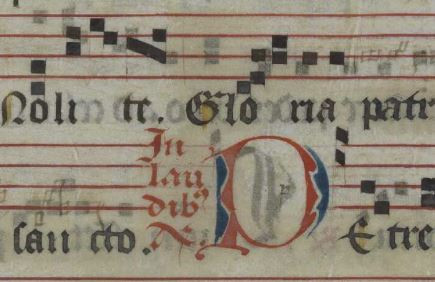 Noli te. Glo ria patr
In
lau
dibꝰ
san cto. A. P Etre